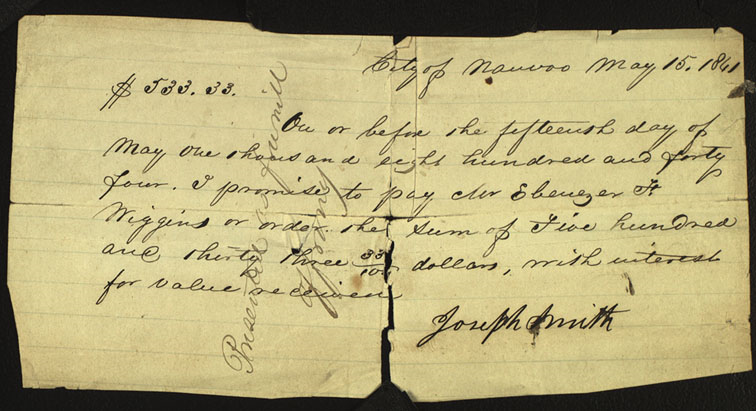 City of Nauvoo May 15. 1841
$ 533. 33.
On or before the fifteenth day of
May One thousand eight hundred and forty
four. I promise to pay Mr Ebenezer F.
Wiggins or order. the sum of Five hundred
and thirty three 33/100 dollars, with interest
for value received
Joseph Smith
Presented